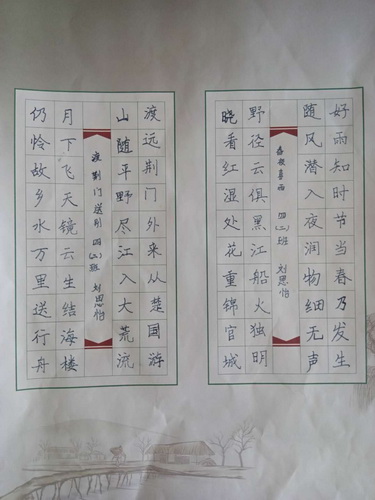 好雨知时节当春乃发生
随风潜入夜润物细无声
春夜喜雨 四(二)班 刘思怡
野径云俱黑江船火独明
晓看红湿处花重锦官城
渡远荆门外来从楚国游
山随平野尽江入大荒流
渡荆门送别 四(二)班 刘思怡
月下飞天镜云生结海楼
仍怜故乡水万里送行舟